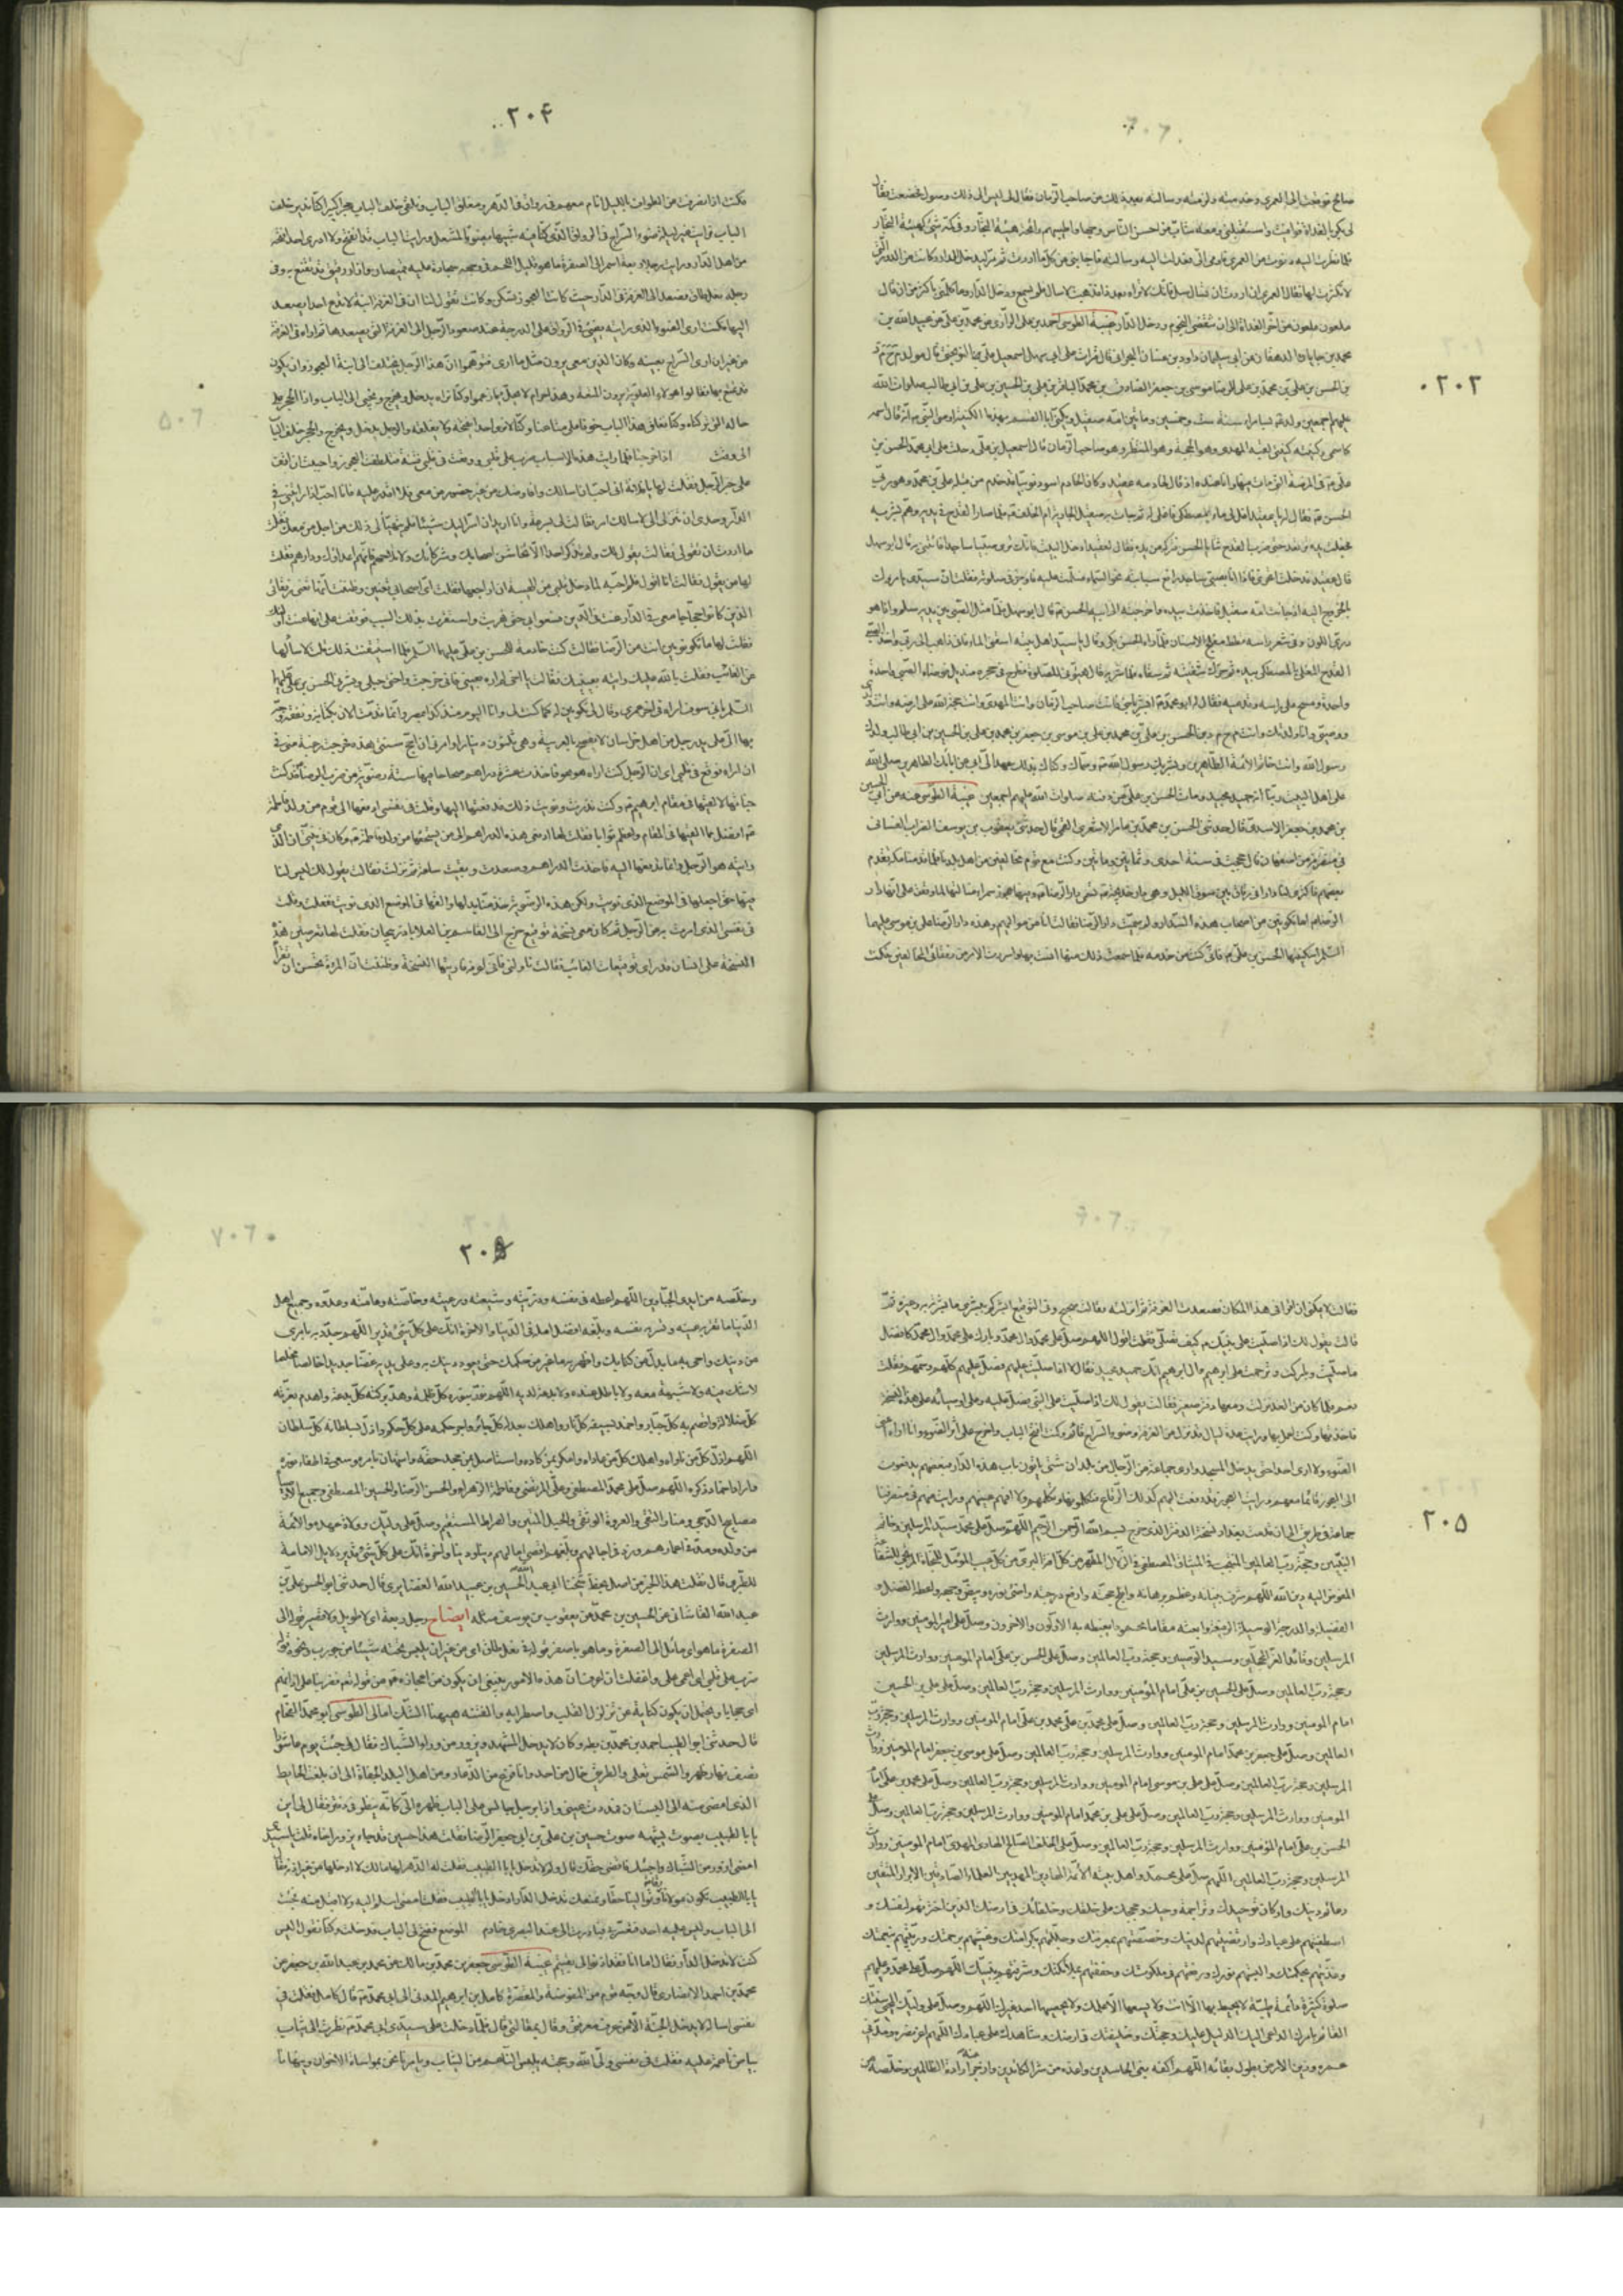 ٢٠٣
صالح فوقعت الى العمري وخدمته ولزمته وسالته بعد ذلك عن صاحب الزمان فقال لى ليس الى ذلك وصول فخضعت فقال
لى بكر بالغداة فوافيت واستقبلنى ومعه شاب من احسن الناس وجها واطيبهم رائحة بهيئة التجار وفى كمه شئ كهيئة التجار
فلما نظرت اليه دنوت من العمري فاومى الى فعدلت اليه وسالته فاجابنى عن كل ما اردت ثم مر ليدخل الدار وكانت من الدور التى
لا نكترث لها فقال العمري ان اردت ان تسال سل فانك لا تراه بعد ذا فذهبت لاسال فلم يسمع ودخل الدار وما كلمنى باكثر من ان قال
ملعون ملعون من اخر الغداة الى ان تنقضى النجوم ودخل الدار غيبة الطوسى احمد بن على الرازى عن محمد بن على عن عبيد الله بن
محمد بن جابان الدهقان عن ابى سليمان داود بن غسان البحرانى قال قرات على ابى سهل اسمعيل بن على النوبختى قال مولد م ح م د
بن الحسن بن على بن محمد بن على الرضا بن موسى بن جعفر الصادق بن محمد الباقر بن على بن الحسين بن على بن ابى طالب صلوات الله
عليهم اجمعين ولد بسامراء سنة ست وخمسين ومأتين امه صقيل ويكنى ابا القسم بهذه الكنية اوصى النبى انه قال اسمه
كاسمى وكنيته كنيتى لقبه المهدى وهو الحجة وهو المنتظر وهو صاحب الزمان قال اسمعيل بن على دخلت على ابى محمد الحسن بن
على فى المرضة التى مات فيها وانا عنده اذ قال لخادمه عقيد وكان الخادم اسود نوبيا قد خدم من قبله على بن محمد وهو ربى
الحسن فقال له يا عقيد اغل لى ماء بمصطكى فاغلى له ثم جاءت به صقيل الجارية ام الخلف فلما صار القدح فى يديه وهم بشربه
فجعلت يده ترتعد حتى ضرب القدح ثنايا الحسن فتركه من يده وقال لعقيد ادخل البيت فانك ترى صبيا ساجدا فائتنى به قال ابو سهل
قال عقيد فدخلت اتحرى فاذا انا بصبى ساجد رافع سبابته نحو السماء فسلمت عليه فاوجز فى صلوته فقلت ان سيدى يامرك
بالخروج اليه اذ جائت امه صقيل فاخذت بيده واخرجته الى ابيه الحسن قال ابو سهل فلما مثل الصبى بين يديه سلم واذا هو
درى اللون وفى شعر راسه قطط مفلج الاسنان فلما راه الحسن بكى وقال يا سيد اهل بيته اسقنى الماء فانى ذاهب الى ربى واخذ الصبى
القدح المغلى بالمصطكى بيده ثم حرك شفتيه ثم سقاه فلما شربه قال هيئونى للصلوة فطرح فى حجره منديل فوضاه الصبى واحدة
واحدة ومسح على راسه وقدميه فقال له ابو محمد ابشر يا بنى فانت صاحب الزمان وانت المهدى وانت حجة الله على ارضه وانت ولدى
ووصيى وانا ولدتك وانت م ح م د بن الحسن بن على بن محمد بن على بن موسى بن جعفر بن محمد بن على بن الحسين بن على بن ابى طالب ولدك
رسول الله وانت خاتم الائمة الطاهرين وبشر بك رسول الله وسماك وكناك بذلك عهد الى ابى عن ابائك الطاهرين صلى الله
على اهل البيت ربنا انه حميد مجيد ومات الحسن بن على من وقته صلوات الله عليهم اجمعين غيبة الطوسى عنه عن ابى الحسين
بن محمد بن جعفر الاسدى قال حدثنى الحسين بن محمد بن عامر الاشعرى القمى قال حدثنى يعقوب بن يوسف الضراب الغسانى
فى منصرفه من اصفهان قال حججت فى سنة احدى وثمانين ومأتين وكنت مع قوم مخالفين من اهل بلدنا فلما قدمنا مكة تقدم
بعضهم فاكترى لنا دارا فى زقاق بين سوق الليل وهى دار خديجة تسمى دار الرضا وفيها عجوز سمراء فسالتها لما وقفت على انها دار
الرضا ما تكونين من اصحاب هذه الدار ولم سميت دار الرضا فقالت انا من مواليهم وهذه دار الرضا على بن موسى عليهما
السلم اسكنيها الحسن بن على فانى كنت من خدمه فلما سمعت ذلك منها انست بها واسررت الامر من رفقائى المخالفين فكنت
٢٠۴
فكنت اذا انصرفت من الطواف بالليل انام معهم فى رواق فى الدار ونغلق الباب ونلقى خلف الباب حجرا كبيرا كنا ندير خلف
الباب فرايت غير ليلة ضوء السراج فى الرواق الذى كنا فيه شبيها بضوء المشعل ورايت الباب قد انفتح ولا ارى احدا فتحه
من اهل الدار ورايت رجلا ربعة اسمر الى الصفرة ما هو قليل اللحم فى وجهه سجادة عليه قميصان وازار رقيق قد تقنع به وفى
رجله نعل طاق فصعد الى الغرفة فى الدار حيث كانت العجوز تسكن وكانت تقول لنا ان فى الغرفة ابنة لا تدع احدا يصعد
اليها فكنت ارى الضوء الذى رايته يضئ فى الرواق على الدرجة عند صعود الرجل الى الغرفة التى يصعدها ثم اراه فى الغرفة
من غير ان ارى السراج بعينه وكان الذين معى يرون مثل ما ارى فتوهموا ان هذا الرجل يختلف الى ابنة العجوز وان يكون
قد تمتع بها فقالوا هؤلاء العلوية يرون المتعة وهذا حرام لا يحل فيما زعموا وكنا نراه يدخل ويخرج ونجئ الى الباب واذا الحجر على
حاله التى تركناه وكنا نغلق هذا الباب خوفا على متاعنا وكنا لا نرى احدا يفتحه ولا يغلقه والرجل يدخل ويخرج والحجر خلف الباب
الى وقت ننحيه اذا خرجنا فلما رايت هذه الاسباب ضرب على قلبى ووقعت فى قلبى فتنة فتلطفت العجوز واحببت ان اقف
على خبر الرجل فقلت لها يا فلانة انى احب ان اسالك وافاوضك من غير حضور من معى فلا اقدر عليه فانا احب اذا رايتنى فى
الدار وحدى ان تنزلى الى لاسالك عن امر فقالت لى مسرعة وانا اريد ان اسر اليك شيئا فلم يتهيا لى ذلك من اجل من معك فقلت
ما اردت ان تقولى فقالت يقول لك ولم تذكر احدا لا تخاشن اصحابك وشركائك ولا تلاحهم فانهم اعداؤك ودارهم فقلت
لها من يقول فقالت انا اقول فلم اجسر لما دخل قلبى من الهيبة ان اراجعها فقلت اى اصحابى تعنين وظننت انها تعنى رفقائى
الذين كانوا حجاجا معى
فقلت لها ما تكونين انت من الرضا فقالت كنت خادمة للحسن بن على عليهما السلم فلما استيقنت ذلك قلت لاسالنها
عن الغائب فقلت بالله عليك رايته بعينك فقالت يا اخى لم اره بعينى فانى خرجت واختى حبلى وبشرنى الحسن بن على عليهما
السلم بانى سوف اراه فى اخر عمرى وقال لى تكونين له كما كنت لى وانا اليوم منذ كذا بمصر وانما قدمت الان بكتابة ونفقة وجه
بها الى على يد رجل من اهل خراسان لا يفصح بالعربية وهى ثلثون دينارا وامرنى ان احج سنتى هذه فخرجت رغبة منى فى
ان اراه فوقع فى قلبى ان الرجل الذى كنت اراه هو هو فاخذت عشرة دراهم صحاحا فيها ستة رضوية من ضرب الرضا قد كنت
خباتها لالقيها فى مقام ابرهيم وكنت نذرت ونويت ذلك فدفعتها اليها وقلت فى نفسى ادفعها الى قوم من ولد فاطمة
افضل مما القيها فى المقام واعظم ثوابا فقلت لها ادفعى هذه الدراهم الى من يستحقها من ولد فاطمة وكان فى نيتى ان الذى
رايته هو الرجل وانما تدفعها اليه فاخذت الدراهم وصعدت وبقيت ساعة ثم نزلت فقالت يقول لك ليس لنا
فيها حق اجعلها فى الموضع الذى نويت ولكن هذه الرضوية خذ منا بدلها والقها فى الموضع الذى نويت ففعلت وقلت
فى نفسى الذى امرت به عن الرجل ثم كان معى نسخة توقيع خرج الى القاسم بن العلا باذربيجان فقلت لها تعرضين هذه
النسخة على انسان قد راى توقيعات الغائب فقالت ناولنى فانى اعرفه فاريتها النسخة وظننت ان المرءة تحسن ان تقرأ
٢٠٥
فقالت لا يمكن ان اقرأ فى هذا المكان فصعدت الغرفة ثم انزلته فقالت صحيح وفى التوقيع ابشركم ببشرى ما بشرت به وغيره ثم
قالت يقول لك اذا صليت على نبيك كيف تصلى فقلت اقول اللهم صل على محمد وال محمد وبارك على محمد وال محمد كافضل
ما صليت وباركت وترحمت على ابرهيم وال ابرهيم انك حميد مجيد فقال لا اذا صليت عليهم فصل عليهم كلهم وسمهم فقلت
نعم فلما كان من الغد نزلت ومعها دفتر صغير فقالت يقول لك اذا صليت على النبى فصل عليه وعلى اوصيائه على هذه النسخة
فاخذتها وكنت اعمل بها ورايت عدة ليال قد نزل من الغرفة وضوء السراج قائم وكنت افتح الباب واخرج على اثر الضوء وانا اراه اعنى
الضوء ولا ارى احدا حتى يدخل المسجد وارى جماعة من الرجال من بلدان شتى ياتون باب هذه الدار فبعضهم يدفعون
الى العجوز رقاعا معهم ورايت العجوز قد دفعت اليهم كذلك الرقاع فيكلمونها وتكلمهم ولا افهم عينهم ورايت منهم فى منصرفنا
جماعة فى طريقى الى ان قدمت بغداد نسخة الدفتر الذى خرج بسم الله الرحمن الرحيم اللهم صل على محمد سيد المرسلين وخاتم
النبيين وحجة رب العالمين المنتجب فى الميثاق المصطفى فى الظلال المطهر من كل افة البرئ من كل عيب المؤمل للنجاة المرتجى للشفاعة
المفوض اليه دين الله اللهم شرف بنيانه وعظم برهانه وافلج حجته وارفع درجته واضئ نوره وبيض وجهه واعطه الفضل و
الفضيلة والدرجة والوسيلة الرفيعة وابعثه مقاما محمودا يغبطه به الاولون والاخرون وصل على امير المومنين ووارث
المرسلين وقائد الغر المحجلين وسيد الوصيين وحجة رب العالمين وصل على الحسن بن على امام المومنين ووارث المرسلين
وحجة رب العالمين وصل على الحسين بن على امام المؤمنين ووارث المرسلين وحجة رب العالمين وصل على على بن الحسين
امام المومنين ووارث المرسلين وحجة رب العالمين وصل على محمد بن على امام المومنين ووارث المرسلين وحجة رب
العالمين وصل على جعفر بن محمد امام المومنين ووارث المرسلين وحجة رب العالمين وصل على موسى بن جعفر امام المومنين ووارث
المرسلين وحجة رب العالمين وصل على على بن موسى امام المومنين ووارث المرسلين وحجة رب العالمين وصل على محمد بن على امام
المومنين ووارث المرسلين وحجة رب العالمين وصل على على بن محمد امام المومنين ووارث المرسلين وحجة رب العالمين وصل على
الحسن بن على امام المؤمنين ووارث المرسلين وحجة رب العالمين وصل على الخلف الصالح الهادى المهدى امام المومنين ووارث
المرسلين وحجة رب العالمين اللهم صل على محمد واهل بيته الائمة الهادين المهديين العلماء الصادقين الابرار المتقين
دعائم دينك واركان توحيدك وتراجمة وحيك وحججك على خلقك وخلفائك فى ارضك الذين اخترتهم لنفسك و
اصطفيتهم على عبادك وارتضيتهم لدينك وخصصتهم بمعرفتك وجللتهم بكرامتك وغشيتهم برحمتك وربيتهم بنعمتك
وغذيتهم بحكمتك والبستهم نورك ورفعتهم فى ملكوتك وحففتهم بملائكتك وشرفتهم بنبيك اللهم صل على محمد وعليهم
صلوة كثيرة دائمة طيبة لا يحيط بها الا انت ولا يسعها الا علمك ولا يحصيها احد غيرك اللهم وصل على وليك المحيى سنتك
القائم بامرك الداعى اليك الدليل عليك وحجتك وخليفتك فى ارضك وشاهدك على عبادك اللهم اعز نصره ومد فى
عمره وزين الارض بطول بقائه اللهم اكفه بغى الحاسدين واعذه من شر الكائدين وازجر عنه ارادة الظالمين وخلصه من
٢٠
وخلصه من ايدى الجبارين اللهم اعطه فى نفسه وذريته وشيعته ورعيته وخاصته وعامته وعدوه وجميع اهل
الدنيا ما تقر به عينه وتسر به نفسه وبلغه افضل امله فى الدنيا والاخرة انك على كل شئ قدير اللهم جدد به ما محى
من دينك واحى به ما بدل من كتابك واظهر به ما غير من حكمك حتى يعود دينك به وعلى يديه غضا جديدا خالصا مخلصا
لا شك فيه ولا شبهة معه ولا باطل عنده ولا بدعة لديه اللهم نور بنوره كل ظلمة وهد بركنه كل بدعة واهدم بعزته
كل ضلالة واقصم به كل جبار واخمد بسيفه كل نار واهلك بعدله كل جائر واجر حكمه على كل حكم واذل بسلطانه كل سلطان
اللهم اذل كل من ناواه واهلك كل من عاداه وامكر بمن كاده واستاصل من جحد حقه واستهان بامره وسعى فى اطفاء نوره
واراد اخماد ذكره اللهم صل على محمد المصطفى وعلى المرتضى وفاطمة الزهراء والحسن الرضا والحسين المصطفى وجميع الاوصياء
مصابيح الدجى ومنار التقى والعروة الوثقى والحبل المتين والصراط المستقيم وصل على وليك وولاة عهده والائمة
من ولده ومد فى اعمارهم وزد فى اجالهم وبلغهم اقصى امالهم دينا ودنيا واخرة انك على كل شئ قدير دلايل الامامة
للطبرى قال نقلت هذا الخبر من اصل بخط شيخنا ابى عبد الله الحسين بن عبيد الله الغضايرى قال حدثنى ابو الحسن على بن
عبد الله القاشانى عن الحسين بن محمد عن يعقوب بن يوسف مثله ايضاح رجل ربعة اى لا طويل ولا قصير قوله الى
الصفرة ما هو اى مائل الى الصفرة وما هو باصفر قوله فى نعل طاق اى من غير ان يلبس تحته شيئا من جورب ونحوه قوله
ضرب على قلبى
اى عجايا ويحتمل ان يكون كناية عن تزلزل القلب واضطرابه والفتنة هيهنا الشك امالى الطوسى ابو محمد الفحام
قال حدثنى ابو الطيب احمد بن محمد بن بطة وكان لا يدخل المشهد ويزور من وراء الشباك فقال لى جئت يوم عاشورا
نصف نهار ظهر والشمس تغلى والطريق خال من احد وانا فزع من الذعار ومن اهل البلد الجفاة الى ان بلغت الحايط
الذى امضى منه الى البستان فمددت عينى واذا برجل جالس على الباب ظهره الى كانه ينظر فى دفتر فقال لى الى اين
يا ابا الطيب بصوت يشبه صوت حسين بن على بن ابى جعفر الرضا فقلت هذا حسين قد جاء يزور اخاه قلت يا سيدى
امضى ازور من الشباك واجيئك فاقضى حقك قال ولم لا تدخل يا ابا الطيب فقلت له الدار لها مالك لا ادخلها من غير اذنه فقال
يا ابا الطيب تكون مولانا رقا وتوالينا حقا ونمنعك تدخل الدار ادخل يا ابا الطيب فقلت امضى اسلم اليه ولا اقبل منه فجئت
الى الباب وليس عليه احد فتعسرت فبادرت الى عند البصرى خادم الموضع ففتح لى الباب فدخلت وكنا نقول اليس
كنت لا تدخل الدار فقال اما انا فقد اذنوا لى بقيتم غيبة الطوسى جعفر بن محمد بن مالك عن محمد بن عبد الله بن جعفر عن
محمد بن احمد الانصارى قال وجه قوم من المفوضة والمقصرة كامل بن ابراهيم المدنى الى ابى محمد قال كامل فقلت فى
نفسى اساله لا يدخل الجنة الا من عرف معرفتى وقال بمقالتى قال فلما دخلت على سيدى ابى محمد نظرت الى ثياب
بياض ناعمة عليه فقلت فى نفسى ولى الله وحجته يلبس الناعم من الثياب ويامرنا نحن بمواساة الاخوان وينهانا